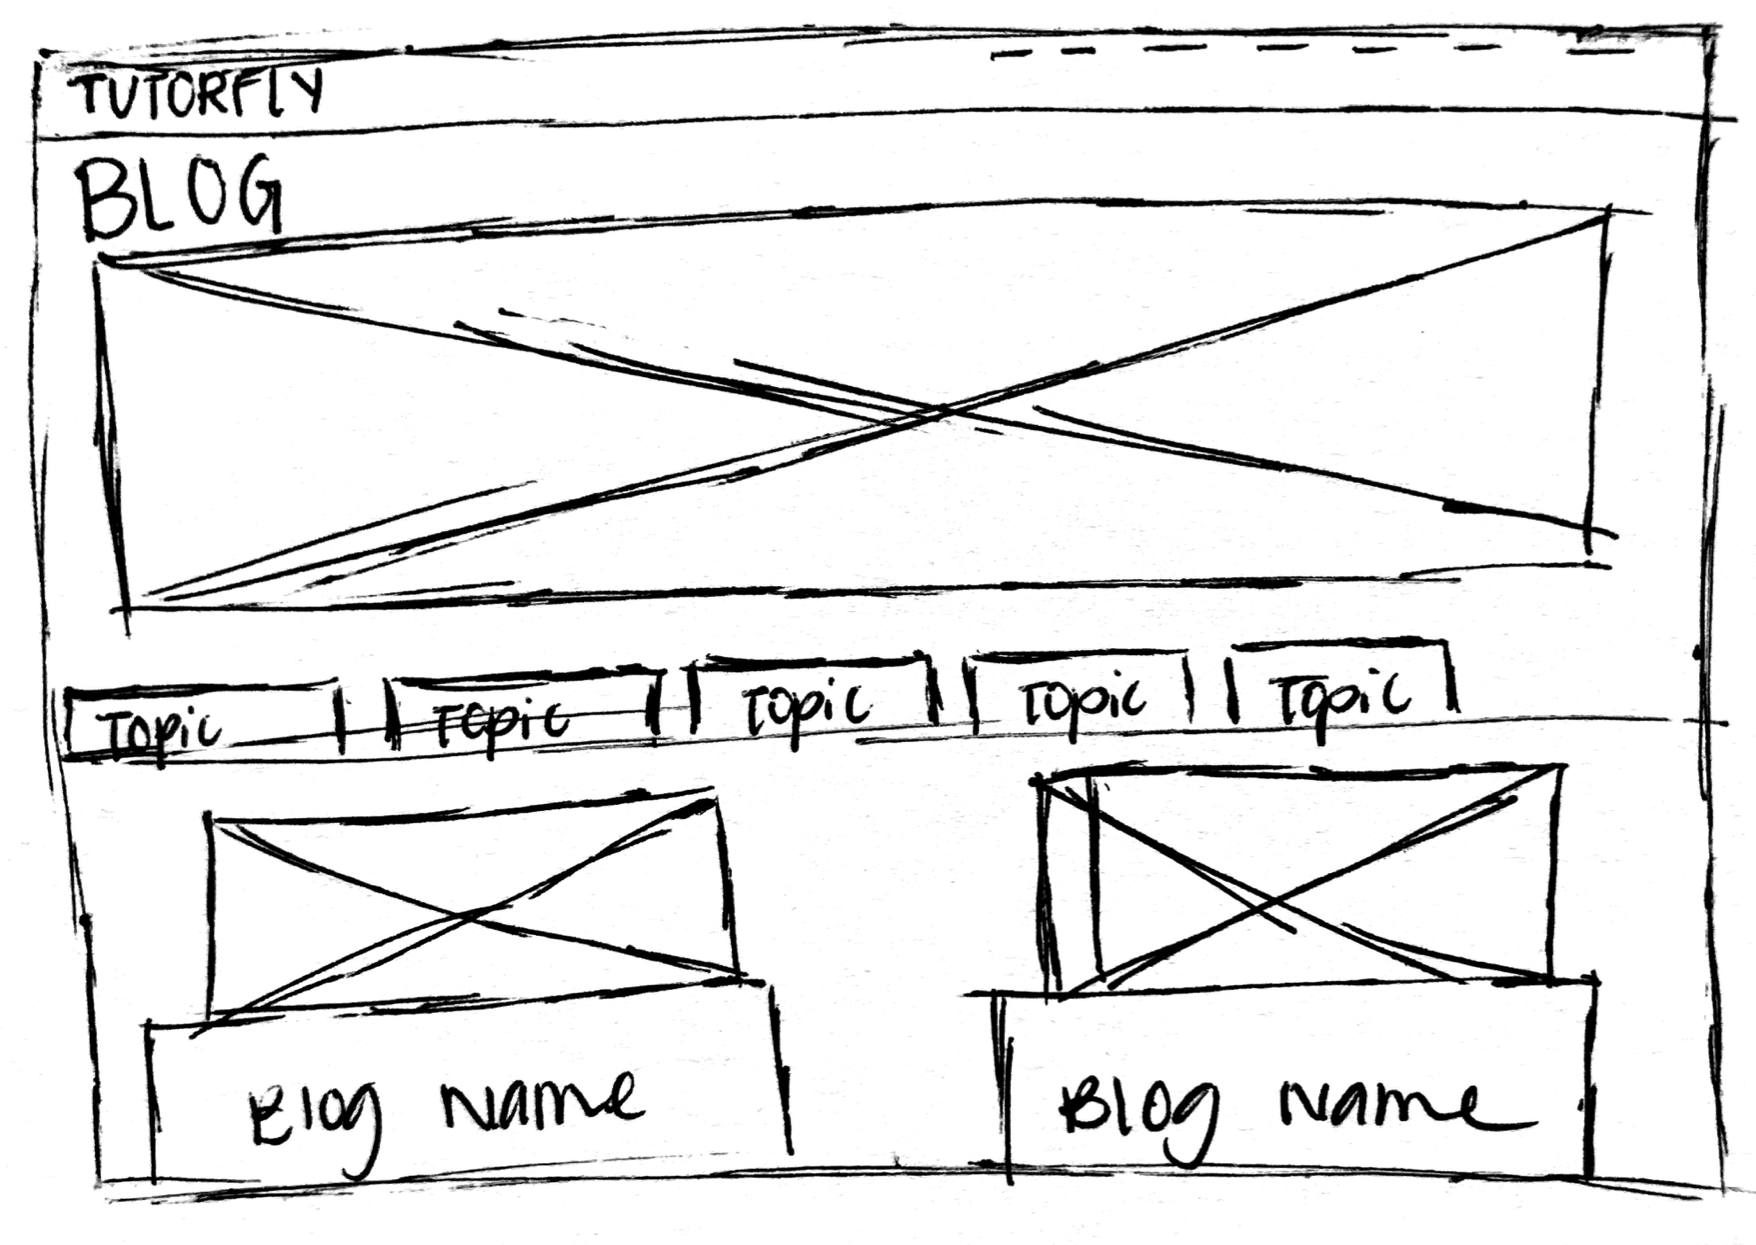 TUTORFLY
BLOG
Topic Topic Topic Topic Topic
Blog Name Blog Name